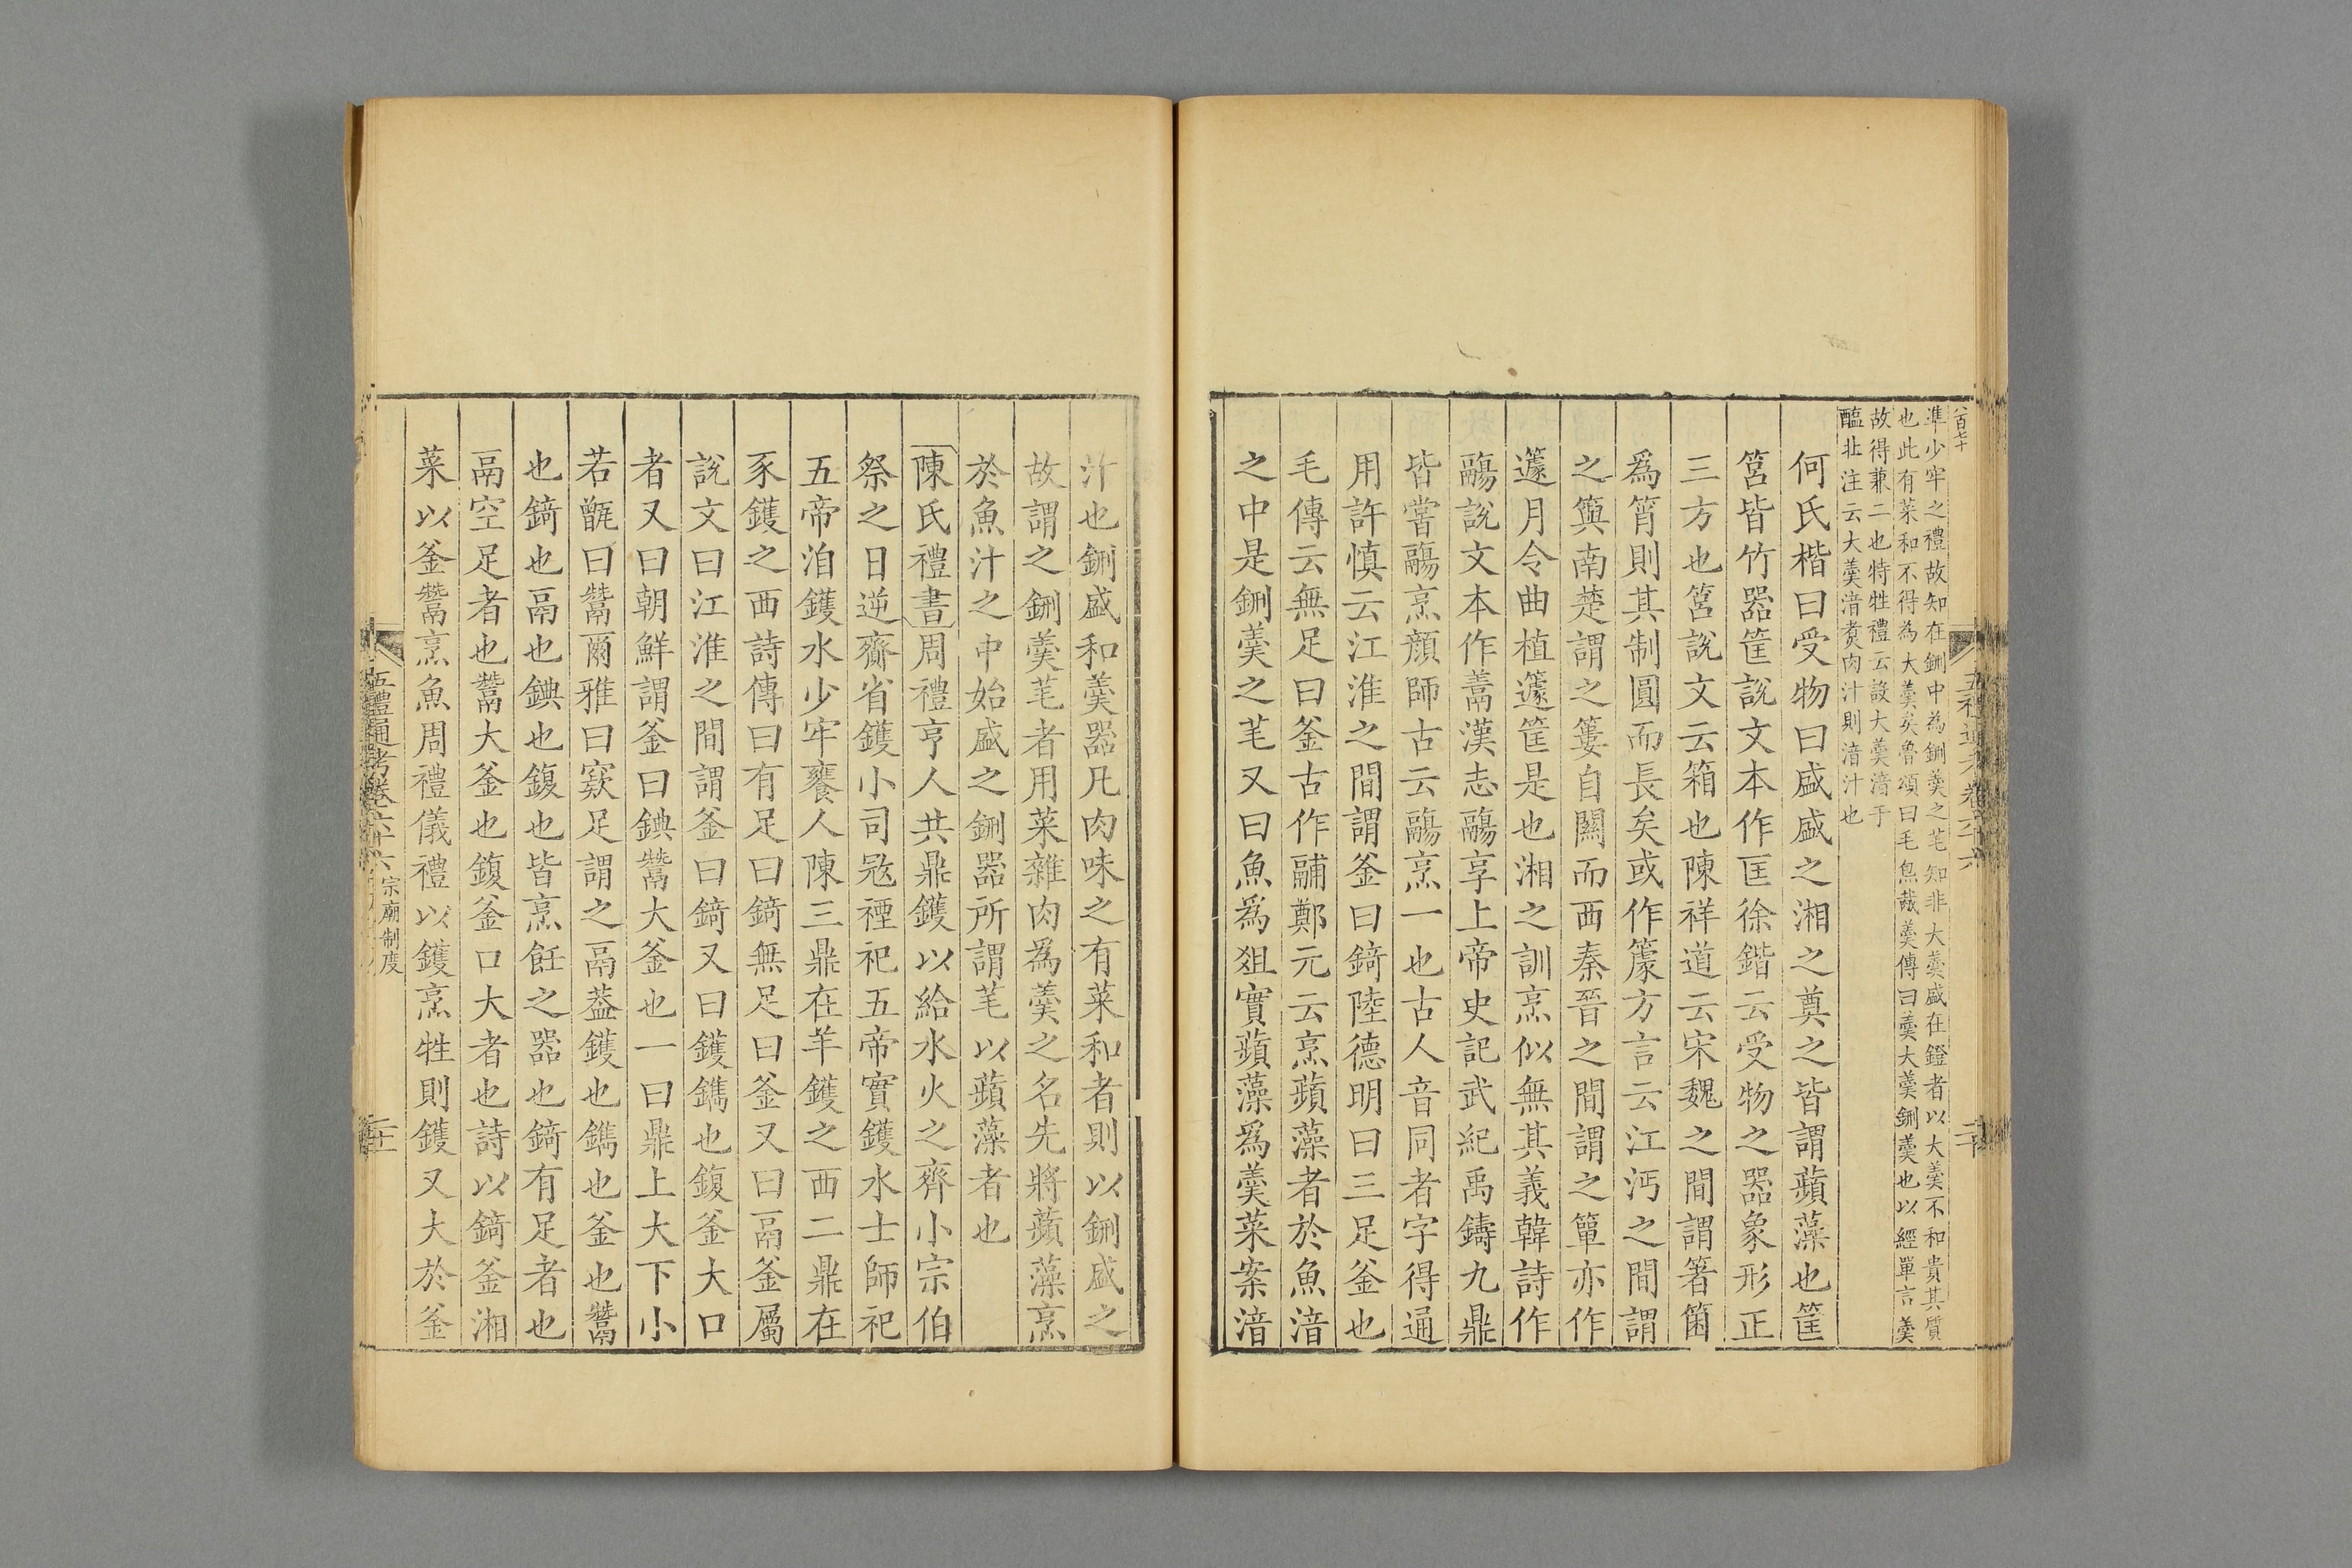 八百七十
準少牢之禮故知在鉶中為鉶羹之芼知非大羹盛在鐙者以大羹不和貴其質
也此有菜和不得為大羹矣魯頌曰毛炰胾羹傳曰羹大羹鉶羹也以經單言羹
故得兼二也特牲禮云設大羹湆于
醢北注云大羹湆煑肉汁則湆汁也
何氏楷曰受物曰盛盛之湘之奠之皆謂蘋藻也筐
筥皆竹器筐說文本作匡徐鍇云受物之器象形正
三方也筥說文云䈰也陳祥道云宋魏之間謂箸筩
爲筲則其制圓而長矣或作籧方言云江沔之間謂
之籅南楚謂之簍自關而西秦晉之間謂之箄亦作
籧月令曲植籧筐是也湘之訓烹似無其義韓詩作
鬺說文本作䰞漢志鬺享上帝史記武紀禹鑄九鼎
皆嘗鬺烹顔師古云鬺烹一也古人音同者字得通
用許慎云江淮之間謂釜曰錡陸德明曰三足釜也
毛傳云無足曰釜古作鬴鄭元云烹蘋藻者於魚湆
之中是鉶羹之芼又曰魚爲俎實蘋藻爲羹菜案湆
汁也鉶盛和羹器凡肉味之有菜和者則以鉶盛之
故謂之鉶羹芼者用菜雜肉爲羹之名先將蘋藻烹
於魚汁之中始盛之鉶器所謂芼以蘋藻者也
陳氏禮書周禮亨人共鼎鑊以給水火之齊小宗伯
祭之日逆齍省鑊小司宼禋祀五帝實鑊水士師祀
五帝洎鑊水少牢饔人陳三鼎在羊鑊之西二鼎在
豕鑊之西詩傳曰有足曰錡無足曰釜又曰鬲釜屬
說文曰江淮之間謂釜曰錡又曰鑊鐫也鍑釜大口
者又曰朝鮮謂釜曰錪鬵大釜也一曰鼎上大下小
若甑曰鬵爾雅曰款足謂之鬲葢鑊也鐫也釜也鬵
也錡也鬲也錪也鍑也皆烹飪之器也錡有足者也
鬲空足者也鬵大釜也鍑釜口大者也詩以錡釜湘
菜以釜鬵烹魚周禮儀禮以鑊烹牲則鑊又大於釜
五禮通考卷六十六 宗廟制度